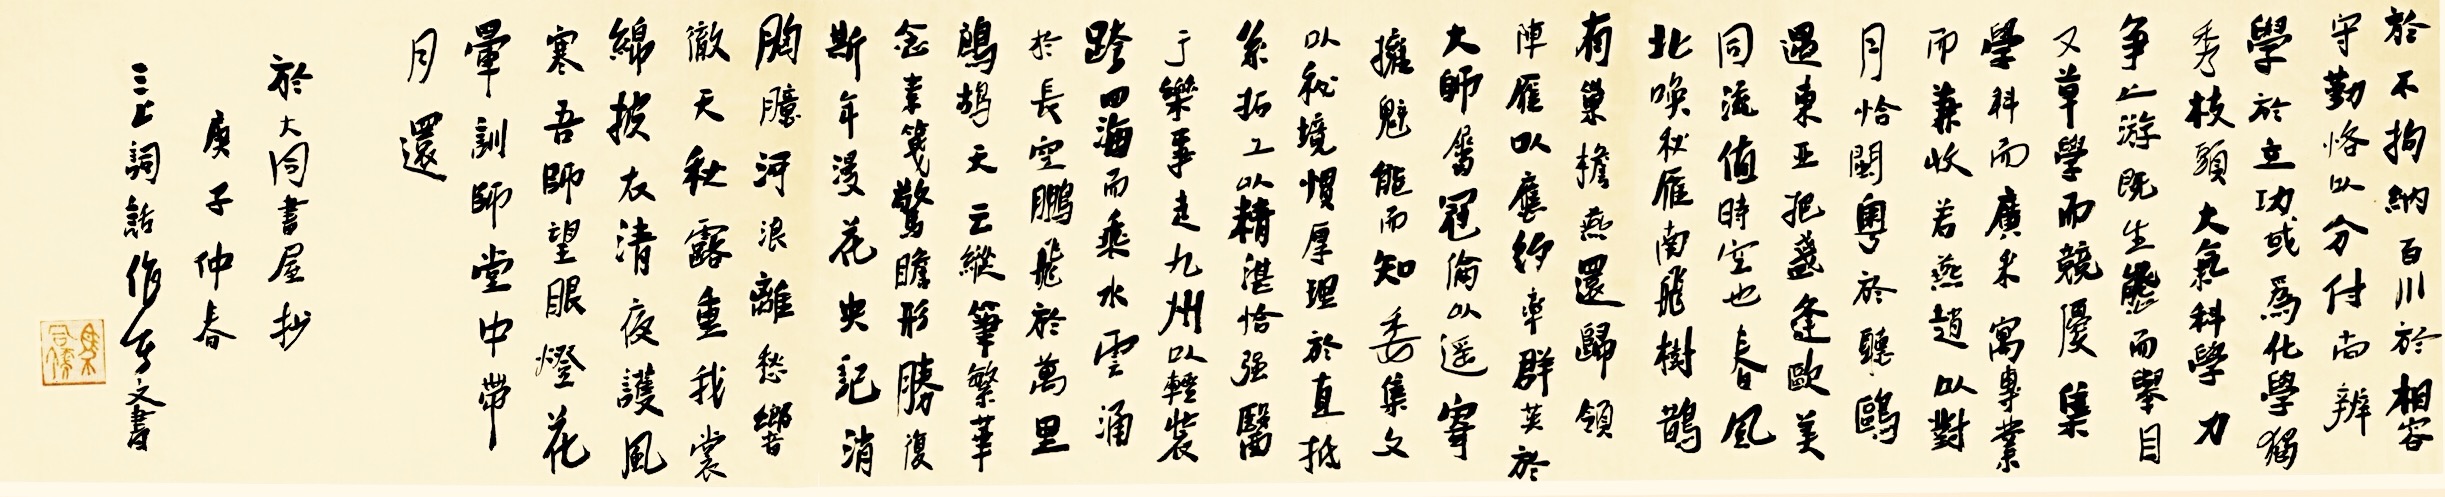 於不拘納百川於相容
守勤恪以分付尚辨
學於立功或為化學獨
秀枝頭大氣科學力
争上游既生態而舉目
又草學而競優集
學科而廣米寓專業
而兼收若燕趙以對
月恰閩粵於聽鷗
遇東亞把盞逢歐美
同流值時空也春風
北喚秋雁南飛樹鵲
有巢檐燕還歸領
陣雁以應約率群英於
大師屬冠倫以遥寄
擁魁能而知委集文
以秘境慣厚理於直抵
系拓工以精湛恰强醫
于樂事走九州以輕裝
跨四海而乘水雲涌
於長空鵬飛於萬里
鷓鴣天 云縱筆繁華
念素箋驚瞻形勝復
斯年漫花央記消
胸臆河浪離愁響
徹天秋露重我裳
綿披衣清夜護風
寒吾師望眼燈花
暈訓師堂中帶
月還
於大同書屋抄
庚子仲春
三上詞話作 文書